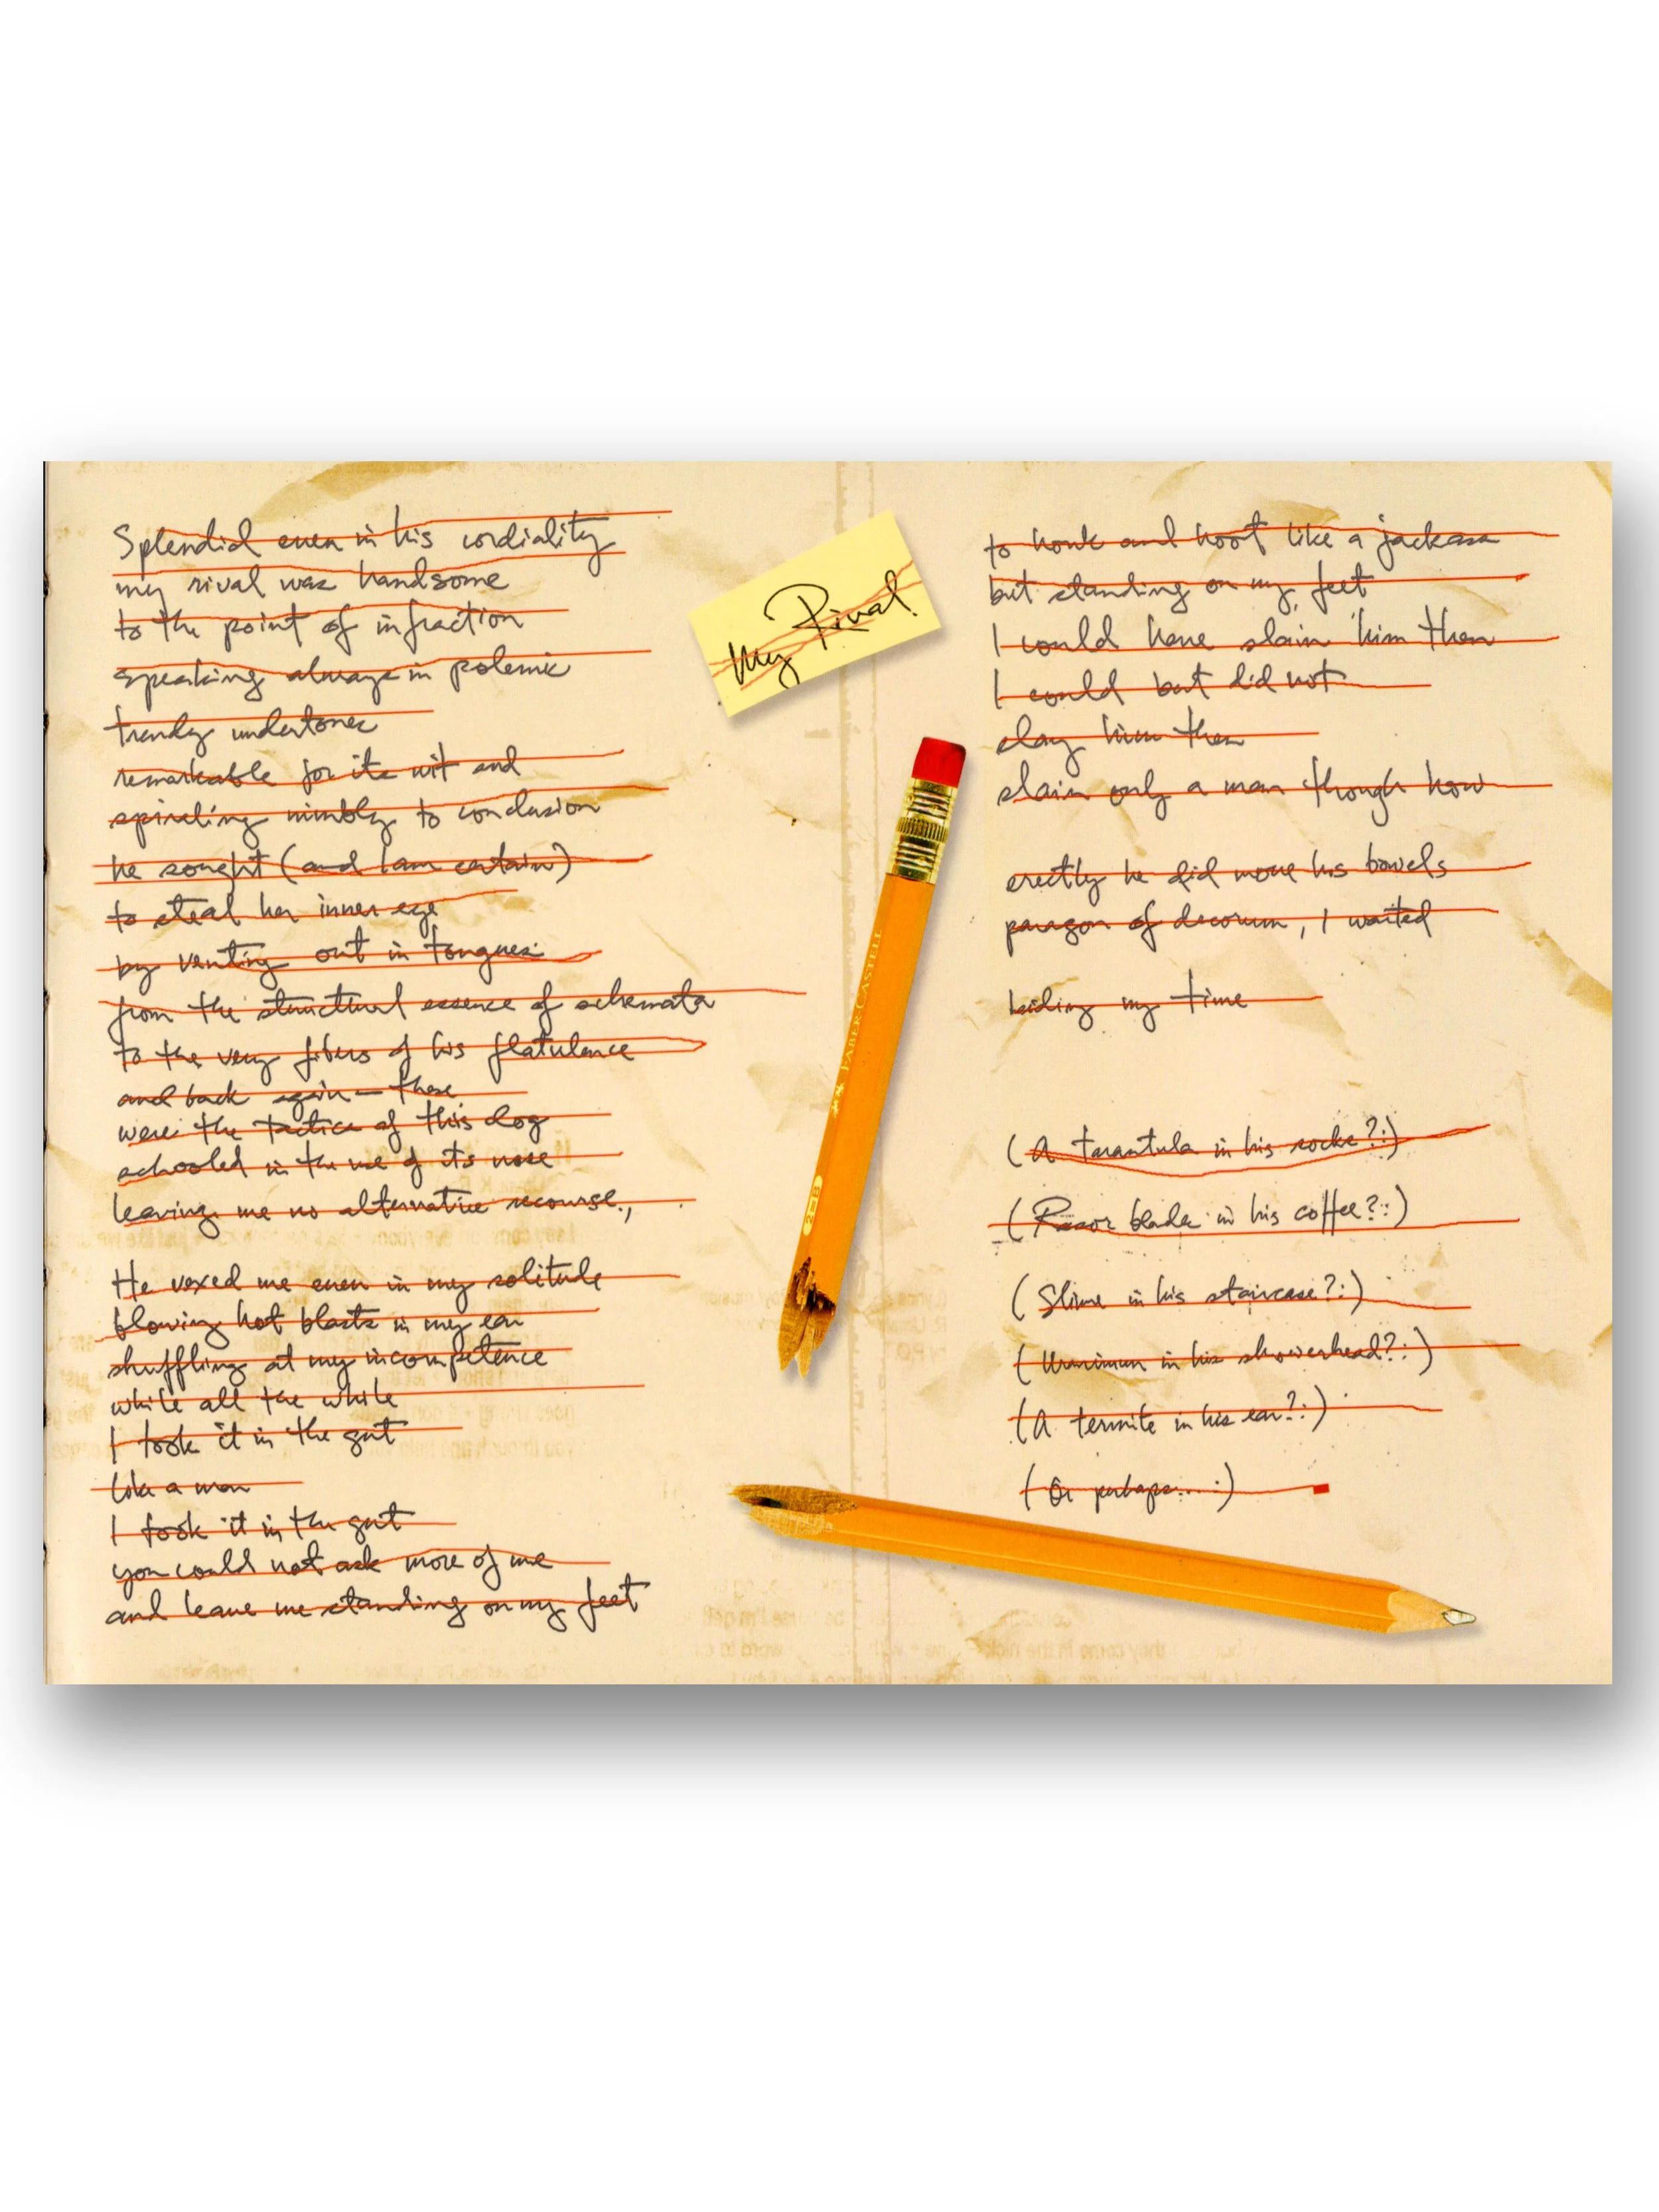 Splendid even in his cordiality
my rival was handsome
to the point of infraction
speaking always in polemic
trendy undertones
remarkable for its wit and
spiraling nimbly to conclusion
he sought (and I am certain)
to steal her inner eye
by venting out in tongues:
from the structural essence of schemata
to the very fibers of his flatulence
and back again — these
were the tactics of this dog
schooled in the use of its nose
leaving me no alternative recourse.,
He vexed me even in my solitude
blowing hot blasts in my ear
shuffling at my incompetence
while all the while
I took it in the gut
like a man
I took it in the gut
you could not ask more of me
and leave me standing on my feet
My Rival
FABER CASTELL
2=B
to honk and hoot like a jackass
but standing on my feet
I could have slain him then
I could but did not
slay him then
slain only a man though how
erectly he did move his bowels
paragon of decorum, I waited
biding my time
(A tarantula in his socks?:)
(Razor blade in his coffee?:)
(Slime in his staircase?:)
( in his showerhead?:)
(A termite in his ear?:)
(Or perhaps....:)